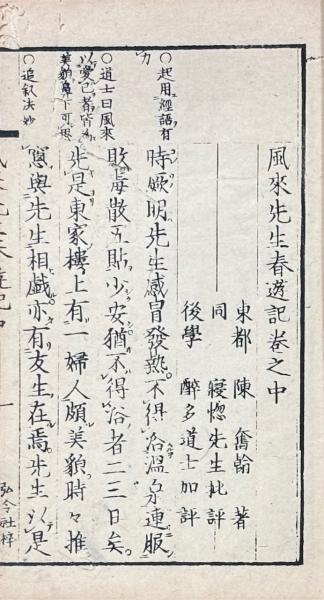 風來先生春遊記卷之中
東都 陳 奮翰 著
同 寢惚先生批評
後學 醉多道士加評
時厥明先生感冒發熱不得浴溫泉連服
敗毒散五貼少安猶不得浴者二三日矣
先是東家樓上有一婦人頗美貌時々推
窻與先生相戲亦有友生在焉先生以是
○起用經語有
力
○道士曰風來
以愛己者皆為
美貌
○追叙决妙
弘令社梓